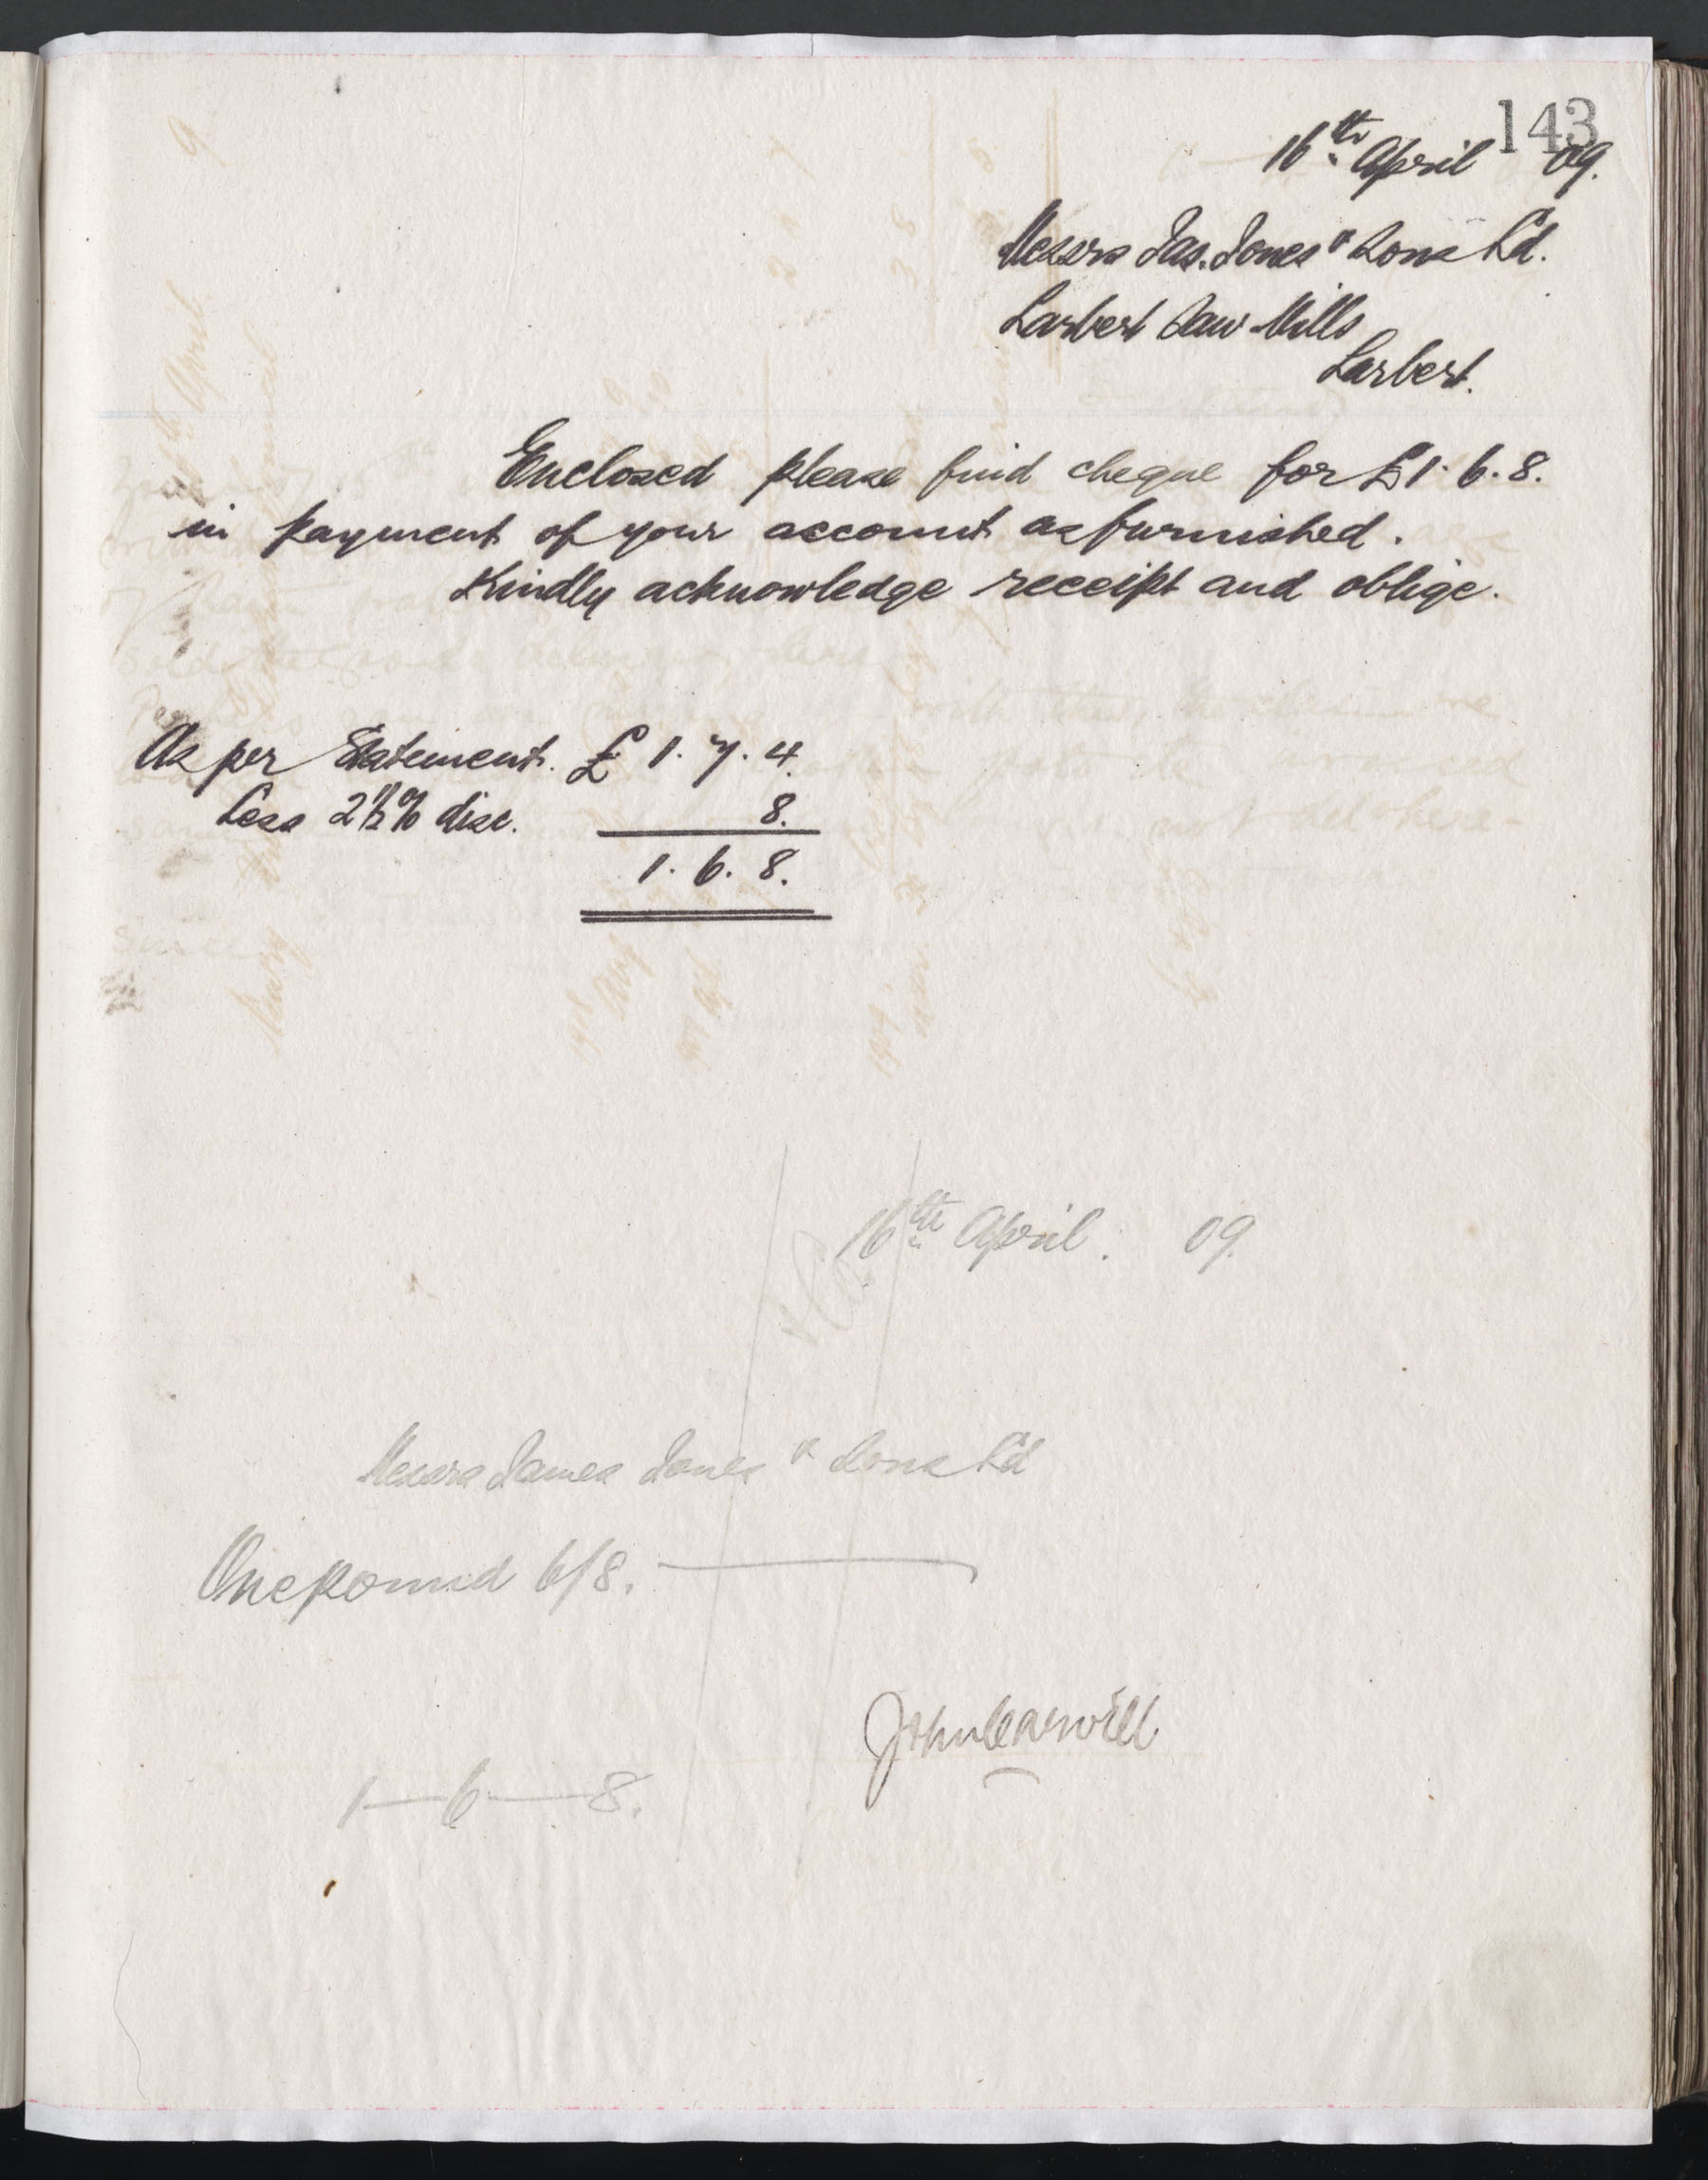 143
16th April 09.
Messrs Jas. Jones & Sons Ld.
Larbert Saw Mills
Larbert.
Enclosed please find cheque for £1. 6. 8.
in payment of your account as furnished.
Kindly acknowledge receipt and oblige.
As per Statement. £ 1. 7. 4.
Less 2½% disc. 8.
1. 6. 8.
16th April. 09.
& Co
Messrs James Jones & Sons Ld
One pound 6/8.
John Carswell
1—6—8.